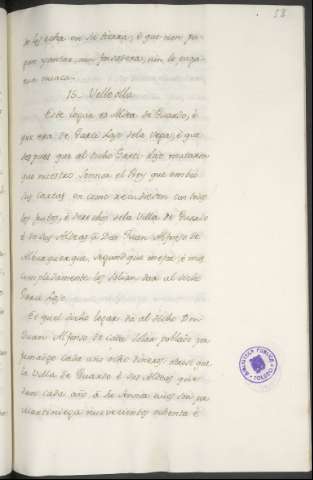 58
de los echa en su tierra, é que non pa-
gan yantar, nin fonsadera, nin la paga-
ron nunca.
15. Velbolla
Este logar es Aldea de Guardo, é
que era de Garci Laso de la Vega, é que
despues que al dicho Garci Laso mataron
que nuestro Sennor el Rey que embió
sus cartas en como recudiesen con todos
los pechos, é derechos de la Villa de Guardo
é de sus Aldeas á Don Juan Alfonso de
Alburquerque, segund que mejor é mas
complidamente los solian dar al dicho
Garci Laso.
Et quel dicho logar dá al dicho Don
Juan Alfonso de cada solar poblado por
cada año ocho dineros. de que
la Villa de Guardo é sus Aldeas que
dan cada año á su Sennor por
martiniega nuevecientos ochenta é
BIBLIOTECA PUBLICA
TOLEDO